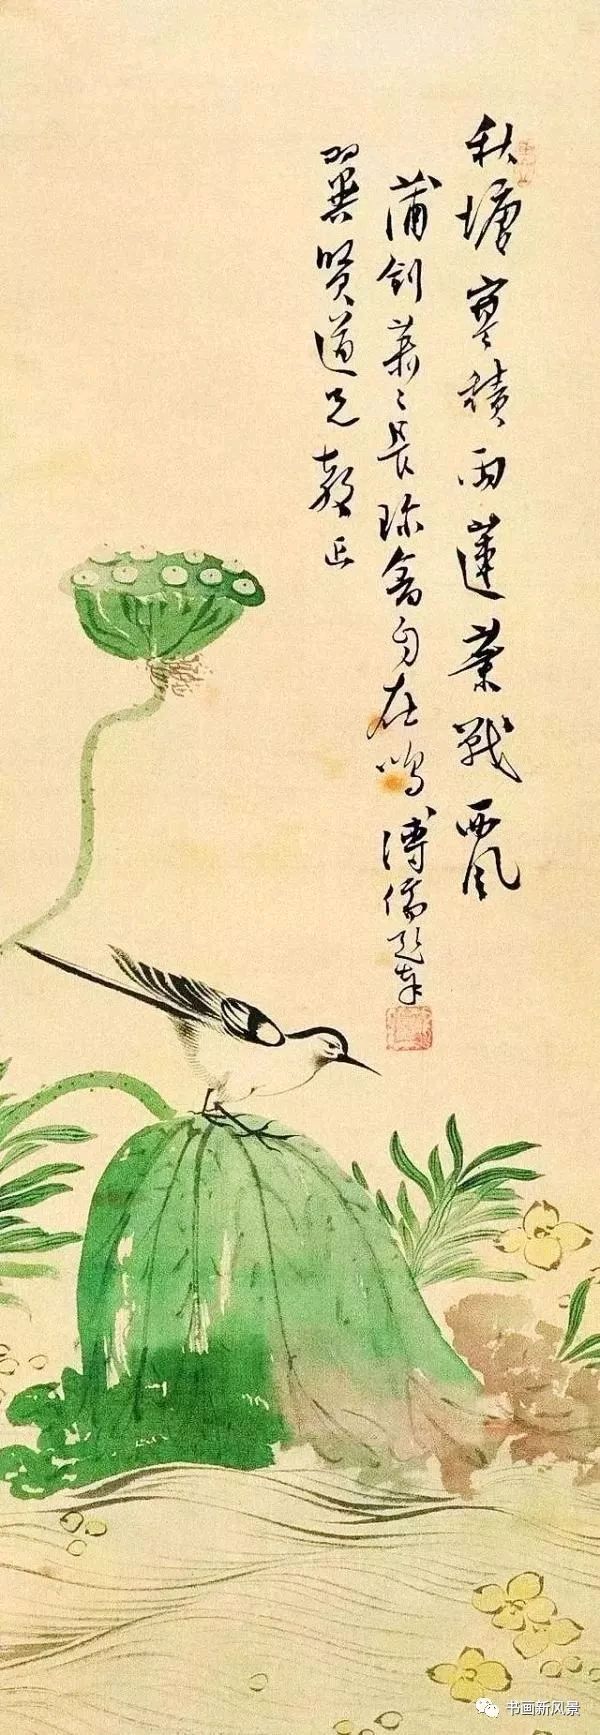 秋塘寒積雨蓮葉戰西風
蒲劍長珍禽自在鳴溥儒題奉
翼賢道兄教正
书画新风景